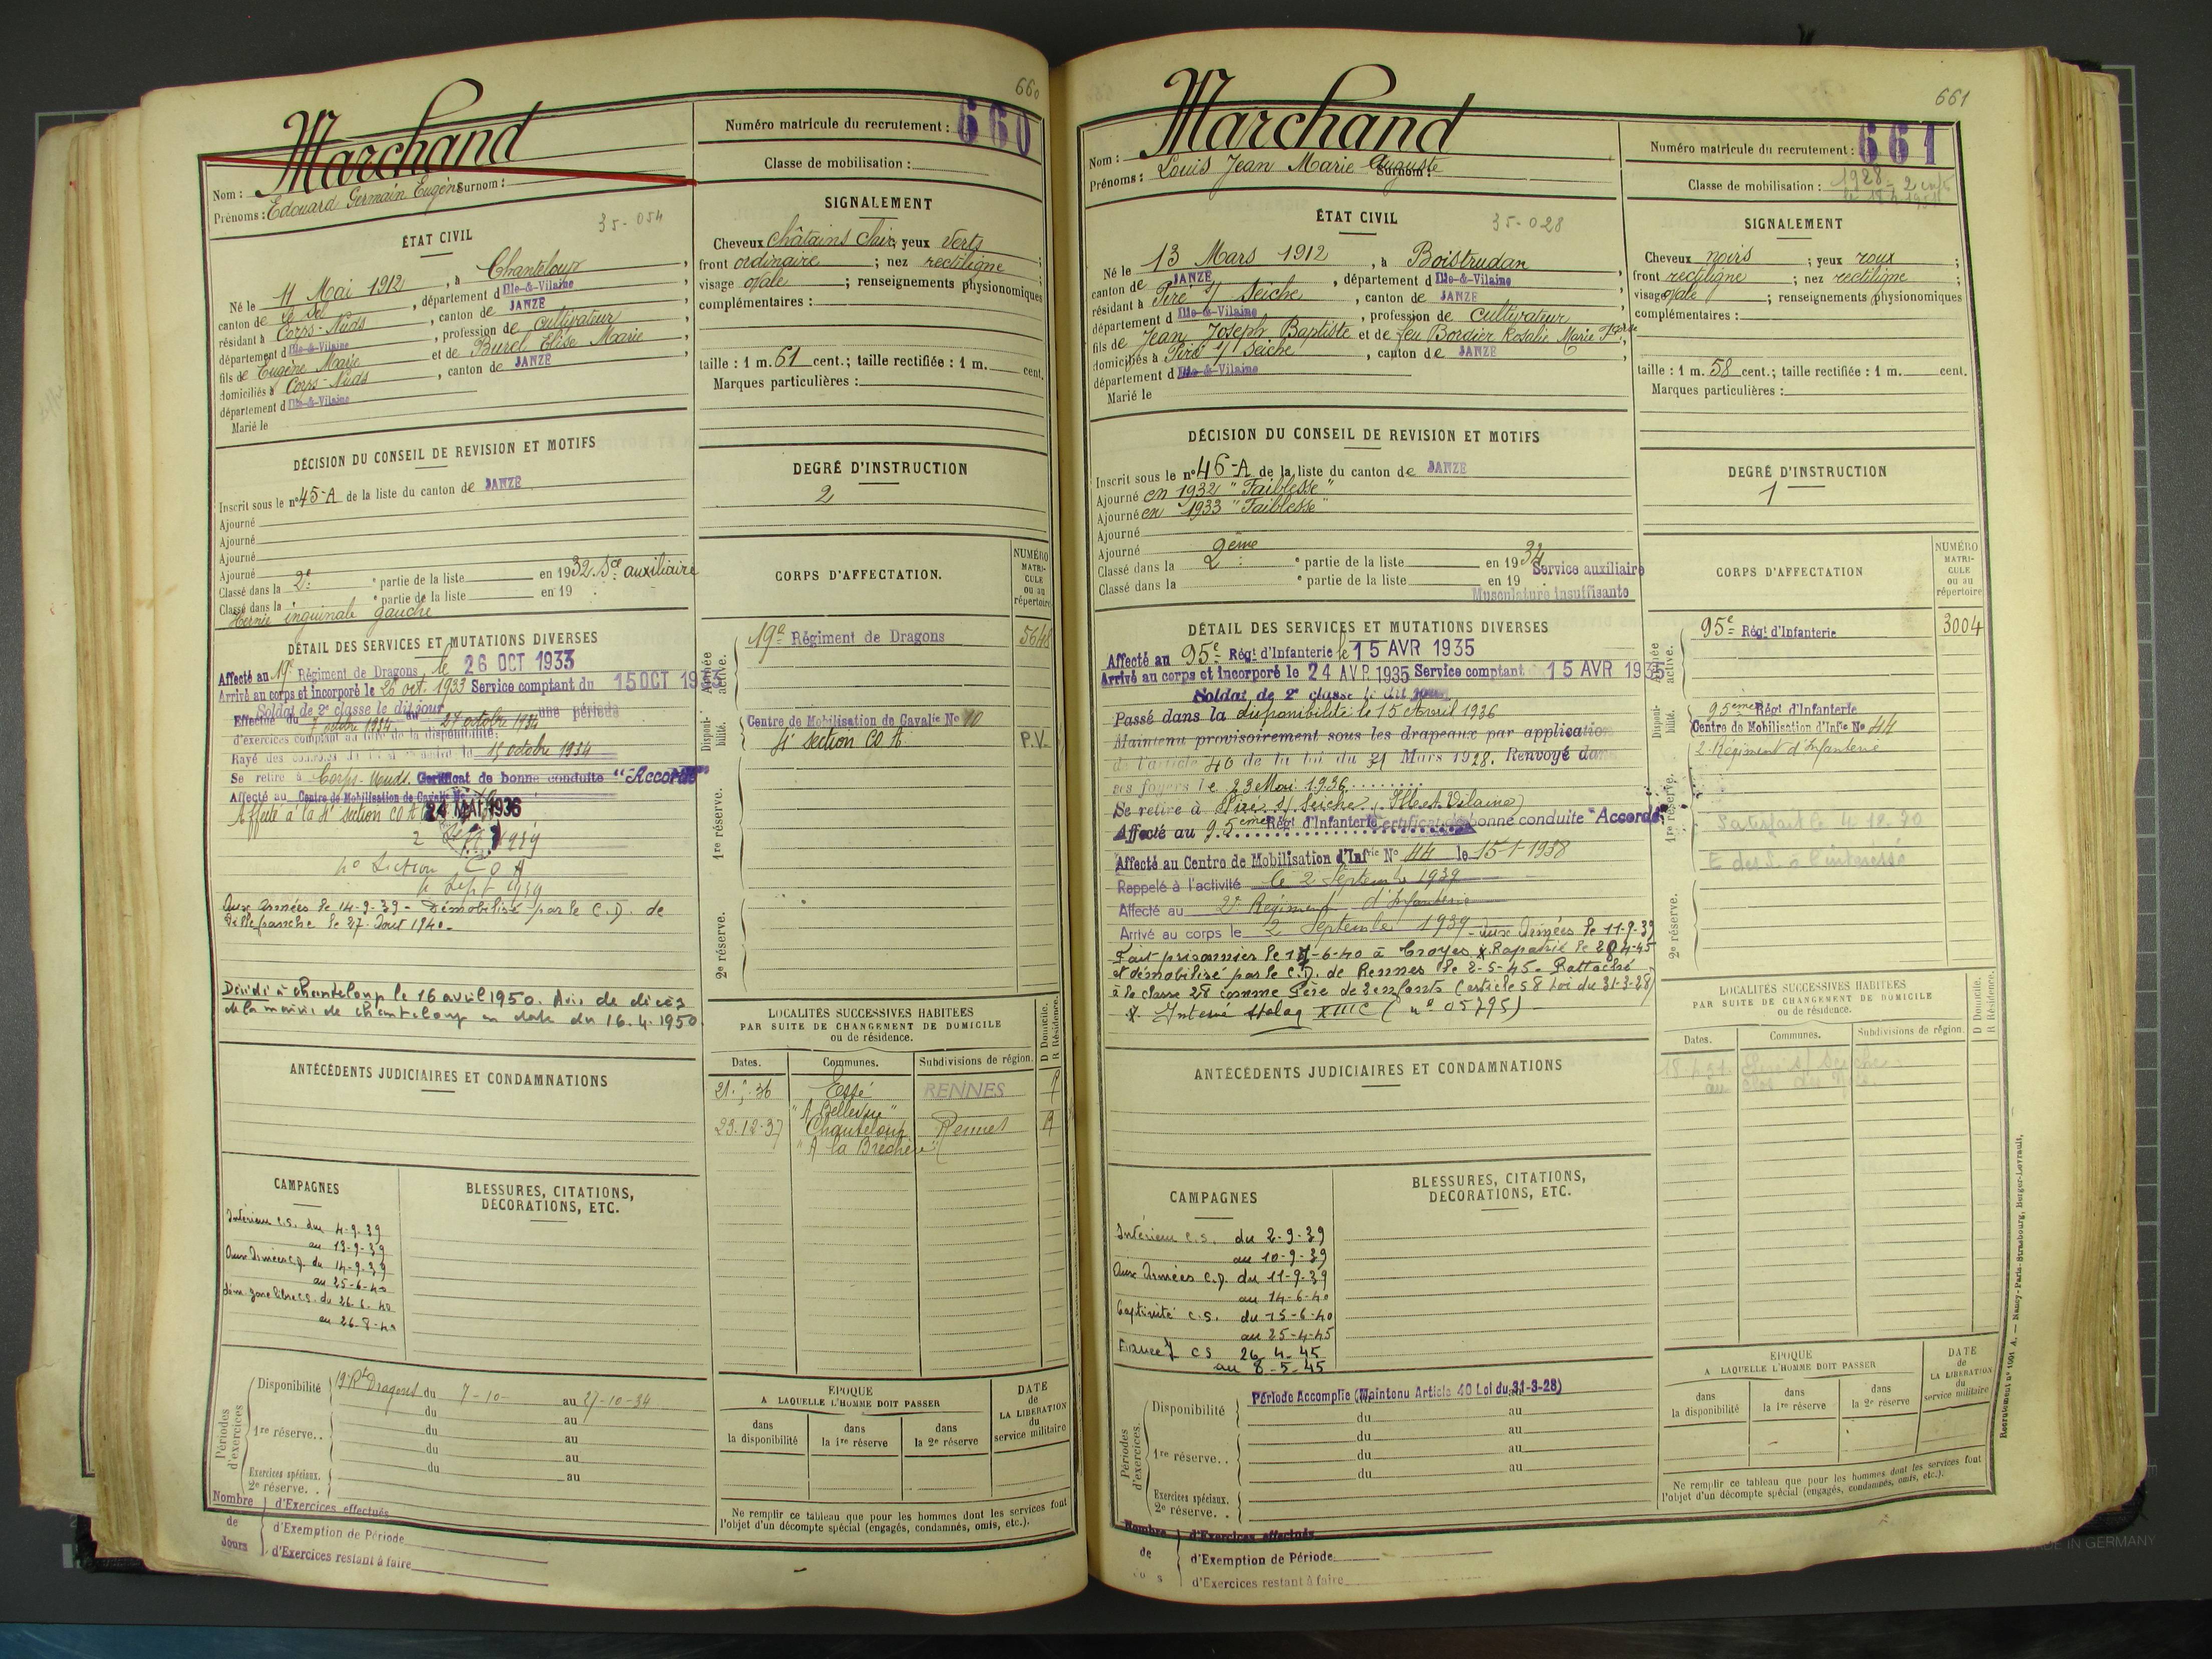 660
Marchand
Nom :
Surnom :
Prénoms : Edouard Germain Eugène
35-054
ÉTAT CIVIL
Né le 11 Mai 1912, à Chanteloup,
canton de Le Sel, département d Ille-&-Vilaine,
résidant à Corps-Nuds, canton de JANZÉ,
département d Ille-&-Vilaine, profession de cultivateur,
fils de Eugène Marie et de Burel Elise Marie,
domiciliés à Corps-Nuds, canton de JANZÉ,
département d Ille-&-Vilaine
Marié le
DÉCISION DU CONSEIL DE REVISION ET MOTIFS
Inscrit sous le n° 45-A de la liste du canton de JANZÉ
Ajourné
Ajourné
Ajourné
Ajourné
Classé dans la 2e ° partie de la liste en 1932 Sce auxiliaire
Classé dans la ° partie de la liste en 19
Hernie inguinale gauche
DÉTAIL DES SERVICES ET MUTATIONS DIVERSES
Affecté au 19e Régiment de Dragons, le 26 OCT 1933
Arrivé au corps et incorporé le 26 oct. 1933 Service comptant du 15 OCT 1933
Soldat de 2e classe le dit jour
Effectué du 7 octobre 1934 au 27 octobre 1934 une période
d'exercices comptant au titre de la disponibilité.
Rayé des contrôles le 15 octobre 1934
Se retire à Corps-Nuds. Certificat de bonne conduite "Accordé"
Affecté au Centre de Mobilisation de Cavalie No 10
Affecté à la 4e section COA 24 MAI 1936
2 Sept 1939
4e Section COA
4 Sept 1939
Aux armées le 14-9-39 - Démobilisé par le C.D. de
Villefranche le 27 Aout 1940.
Décédé à Chanteloup le 16 avril 1950. Avis de décès
de la mairie de Chanteloup en date du 16.4.1950.
ANTÉCÉDENTS JUDICIAIRES ET CONDAMNATIONS
CAMPAGNES
Intérieur c.s. du 4-9-39
au 13-9-39
Aux Armées c.d. du 14-9-39
au 25-6-40
dém. zone libre c.s. du 26.6.40
au 26-8-40
BLESSURES, CITATIONS,
DÉCORATIONS, ETC.
Périodes d'exercices
Disponibilité 19e Rt Dragons du 7-10- au 27-10-34
du au
1re réserve.. du au
du au
du au
Exercices spéciaux.
2e réserve. .
Nombre de Jours
d'Exercices effectués
d'Exemption de Période
d'Exercices restant à faire
Numéro matricule du recrutement : 660
Classe de mobilisation :
SIGNALEMENT
Cheveux châtains clair ; yeux verts ;
front ordinaire ; nez rectiligne ;
visage ovale ; renseignements physionomiques
complémentaires :
taille : 1 m. 61 cent. ; taille rectifiée : 1 m. cent.
Marques particulières :
DEGRÉ D'INSTRUCTION
2
CORPS D'AFFECTATION.
NUMÉRO MATRICULE ou au répertoire
Armée active.
19e Régiment de Dragons 5648
Disponibilité.
Centre de Mobilisation de Cavalie No 10
4e section COA P.V.
1re réserve.
2e réserve.
LOCALITÉS SUCCESSIVES HABITÉES
PAR SUITE DE CHANGEMENT DE DOMICILE
ou de résidence.
Dates. Communes. Subdivisions de région. D Domicile. R Résidence.
Essé RENNES
"A Bellevue"
23.12.37 Chanteloup Rennes R
ÉPOQUE
A LAQUELLE L'HOMME DOIT PASSER
dans la disponibilité
dans la 1re réserve
dans la 2e réserve
DATE de LA LIBÉRATION du service militaire
Ne remplir ce tableau que pour les hommes dont les services font
l'objet d'un décompte spécial (engagés, condamnés, omis, etc.).
661
Marchand
Nom :
Prénoms : Louis Jean Marie Auguste
Surnom :
35-028
ÉTAT CIVIL
Né le 13 Mars 1912, à Boistrudan,
canton de JANZÉ, département d Ille-&-Vilaine,
résidant à Piré s/ Seiche, canton de JANZÉ,
département d Ille-&-Vilaine, profession de cultivateur,
fils de Jean Joseph Baptiste et de feu Bordier Rosalie Marie
domiciliés à Piré s/ Seiche, canton de JANZÉ,
département d Ille-&-Vilaine
Marié le
DÉCISION DU CONSEIL DE REVISION ET MOTIFS
Inscrit sous le n° 46-A de la liste du canton de JANZÉ
Ajourné en 1932 "Faiblesse"
Ajourné en 1933 "Faiblesse"
Ajourné
Ajourné
Classé dans la 2ème ° partie de la liste en 1934 Service auxiliaire
Classé dans la ° partie de la liste en 19
Musculature insuffisante
DÉTAIL DES SERVICES ET MUTATIONS DIVERSES
Affecté au 95e Régt d'Infanterie le 15 AVR 1935
Arrivé au corps et incorporé le 24 AVR 1935 Service comptant 15 AVR 1935
Soldat de 2e classe le dit jour
Passé dans la disponibilité le 15 Avril 1936
Maintenu provisoirement sous les drapeaux par application
de l'article 40 de la loi du 31 Mars 1928. Renvoyé dans
ses foyers le 23 Mai 1936
Se retire à Piré s/ Seiche (Ille et Vilaine)
Affecté au 95ème Régt d'Infanterie Certificat de bonne conduite "Accordé"
Affecté au Centre de Mobilisation d'Infie No 44 le 15-1-1938
Rappelé à l'activité le 2 Septembre 1939
Affecté au 2e Régiment d'Infanterie
Arrivé au corps le 2 Septembre 1939 - aux Armées le 11-9-39
Fait prisonnier le 14-6-40 à Troyes x Rapatrié le 26-4-45
et démobilisé par le C.D. de Rennes le 8-5-45 - Rattaché
à la classe 28 comme Père de 2 enfants (article 58 Loi du 31-3-28)
x Interné Stalag XIIIC (n° 05795)
ANTÉCÉDENTS JUDICIAIRES ET CONDAMNATIONS
CAMPAGNES
Intérieur c.s. du 2-9-39
au 10-9-39
Aux Armées c.d. du 11-9-39
au 14-6-40
Captivité c.s. du 15-6-40
au 25-4-45
France c s 26.4.45
au 8.5.45
BLESSURES, CITATIONS,
DÉCORATIONS, ETC.
Périodes d'exercices.
Période Accomplie (Maintenu Article 40 Loi du 31-3-28)
Disponibilité
du au
du au
1re réserve. . du au
du au
Exercices spéciaux.
2e réserve. .
Nombre de
d'Exercices effectués
d'Exemption de Période
d'Exercices restant à faire
Numéro matricule du recrutement : 661
Classe de mobilisation : 1928 - 2 enfts
SIGNALEMENT
Cheveux noirs ; yeux roux ;
front rectiligne ; nez rectiligne ;
visage ovale ; renseignements physionomiques
complémentaires :
taille : 1 m. 58 cent. ; taille rectifiée : 1 m. cent.
Marques particulières :
DEGRÉ D'INSTRUCTION
1
CORPS D'AFFECTATION
NUMÉRO MATRICULE ou au répertoire
Armée active.
95e Régt d'Infanterie 3004
Disponibilité.
95ème Régt d'Infanterie
Centre de Mobilisation d'Infie No 44
2e Régiment d'Infanterie
1re réserve.
2e réserve.
LOCALITÉS SUCCESSIVES HABITÉES
PAR SUITE DE CHANGEMENT DE DOMICILE
ou de résidence.
Dates. Communes. Subdivisions de région. D Domicile. R Résidence.
ÉPOQUE
A LAQUELLE L'HOMME DOIT PASSER
dans la disponibilité
dans la 1re réserve
dans la 2e réserve
DATE de LA LIBÉRATION du service militaire
Ne remplir ce tableau que pour les hommes dont les services font
l'objet d'un décompte spécial (engagés, condamnés, omis, etc.).
Recrutement n° 1001 A. — Nancy-Paris-Strasbourg, Berger-Levrault.
MADE IN GERMANY